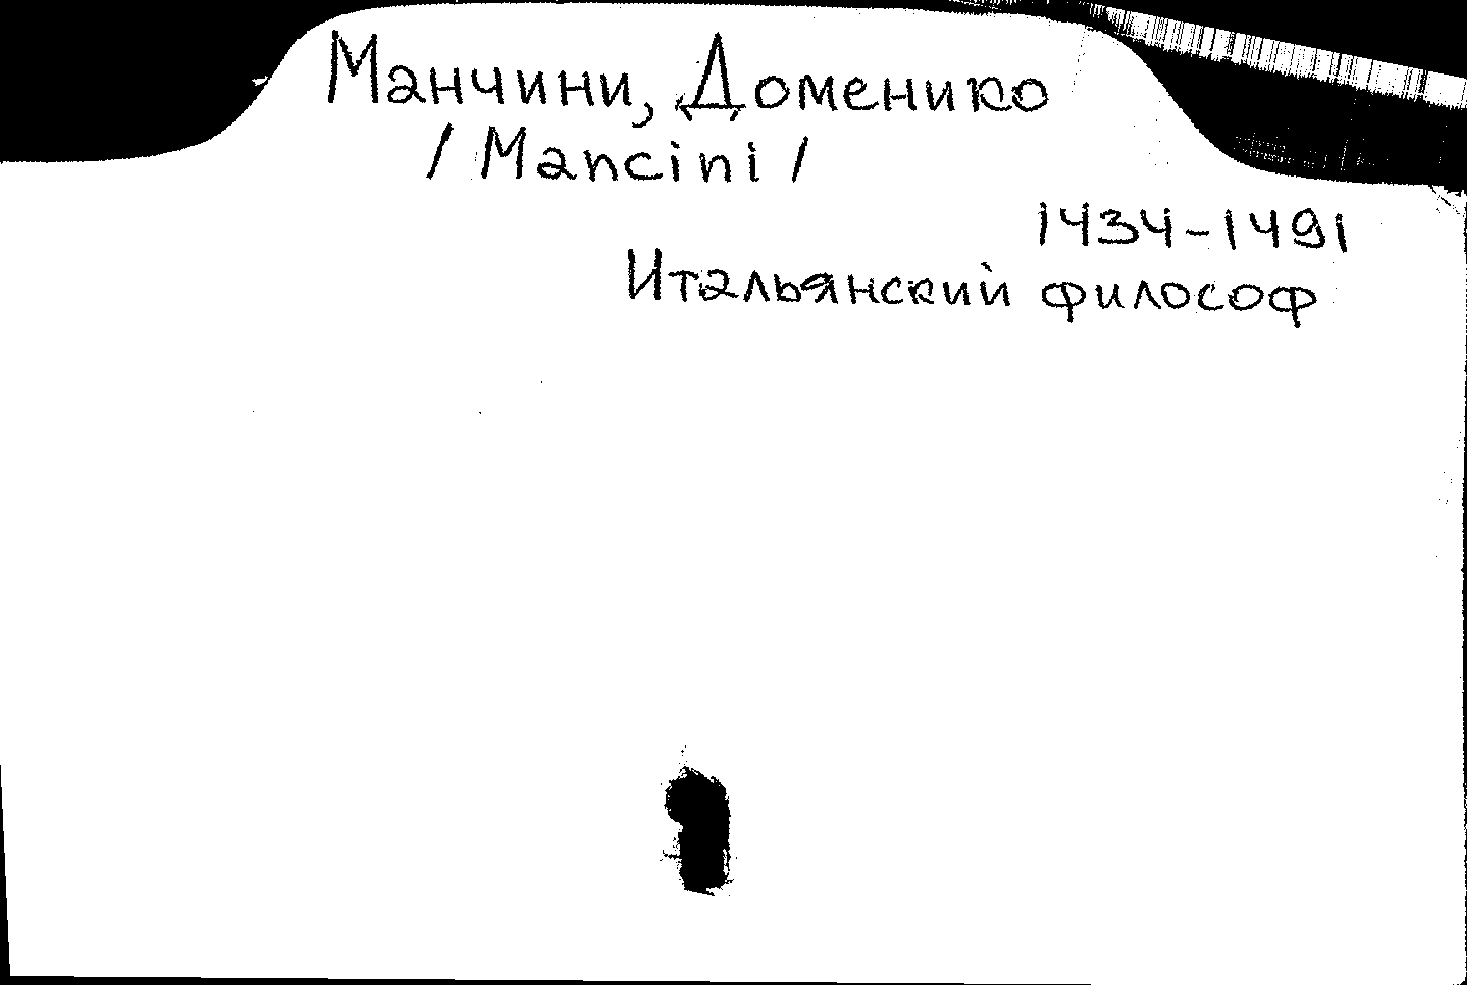 Манчини, Доменико
/ Mancini /
1434-1491
Итальянский философ